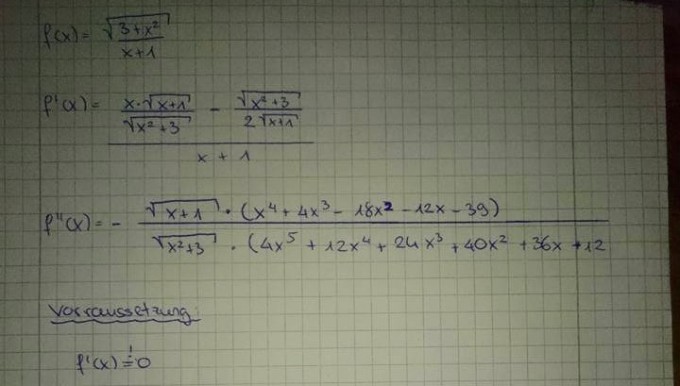 f(x) = √(3+x²) / x+1
f'(x) = (x·√(x+1) / √(x²+3) − √(x²+3) / 2√(x+1)) / x + 1
f''(x) = − √(x+1) · (x⁴ + 4x³ − 18x² − 12x − 39) / √(x²+3) · (4x⁵ + 12x⁴ + 24x³ + 40x² + 36x + 12
Vorraussetzung:
f'(x) != 0